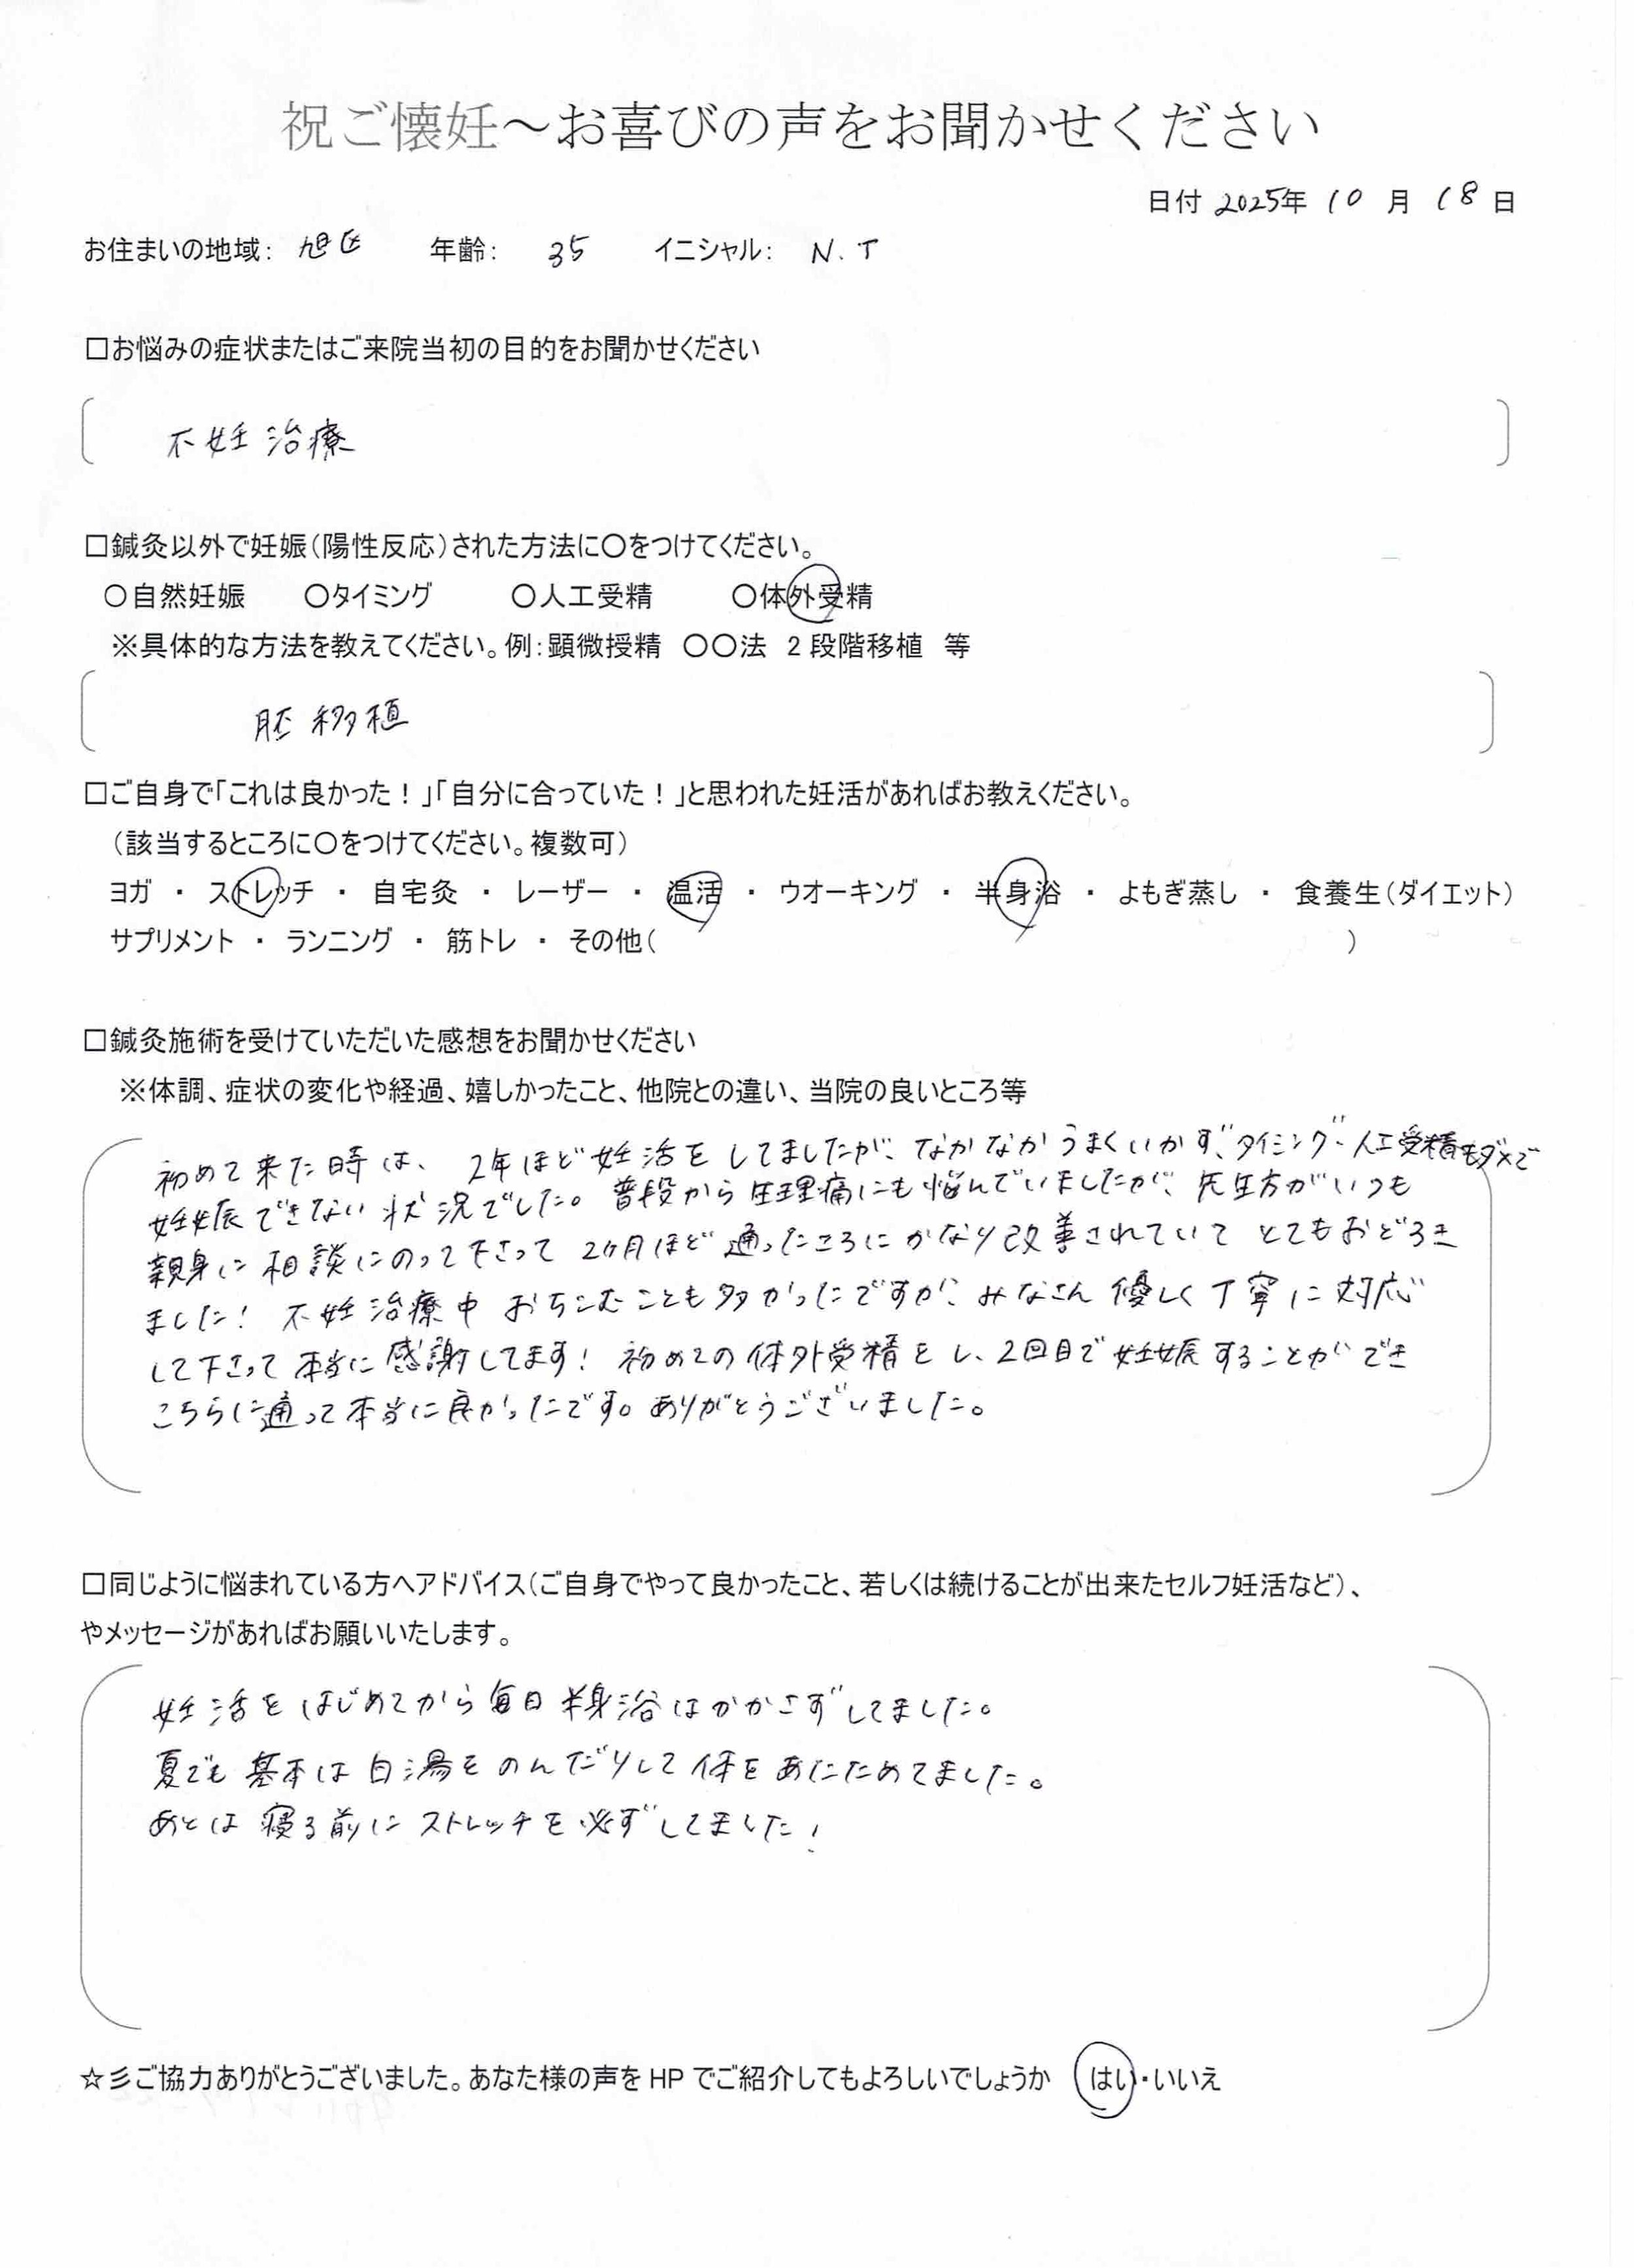 祝ご懐妊～お喜びの声をお聞かせください
日付 2025年 10 月 18 日
お住まいの地域： 旭区 年齢： 35 イニシャル： N.T
□お悩みの症状またはご来院当初の目的をお聞かせください
不妊治療
□鍼灸以外で妊娠（陽性反応）された方法に〇をつけてください。
〇自然妊娠 〇タイミング 〇人工受精 〇体外受精
※具体的な方法を教えてください。例：顕微授精 〇〇法 2段階移植 等
胚移植
□ご自身で「これは良かった！」「自分に合っていた！」と思われた妊活があればお教えください。
（該当するところに〇をつけてください。複数可）
ヨガ ・ ストレッチ ・ 自宅灸 ・ レーザー ・ 温活 ・ ウオーキング ・ 半身浴 ・ よもぎ蒸し ・ 食養生（ダイエット）
サプリメント ・ ランニング ・ 筋トレ ・ その他（ ）
□鍼灸施術を受けていただいた感想をお聞かせください
※体調、症状の変化や経過、嬉しかったこと、他院との違い、当院の良いところ等
初めて来た時は、2年ほど妊活をしてましたが、なかなかうまくいかず、タイミング・人工受精もダメで
妊娠できない状況でした。普段から生理痛にも悩んでいましたが、先生方がいつも
親身に相談にのって下さって 2ヶ月ほど通ったころにかなり改善されていてとてもおどろき
ました！不妊治療中おちこむことも多かったですが、みなさん優しく丁寧に対応
して下さって本当に感謝してます！初めての体外受精をし、2回目で妊娠することができ
こちらに通って本当に良かったです。ありがとうございました。
□同じように悩まれている方へアドバイス（ご自身でやって良かったこと、若しくは続けることが出来たセルフ妊活など）、
やメッセージがあればお願いいたします。
妊活をはじめてから毎日半身浴はかかさずしてました。
夏でも基本は白湯をのんだりして体をあたためてました。
あとは寝る前にストレッチを必ずしてました！
☆彡ご協力ありがとうございました。あなた様の声を HP でご紹介してもよろしいでしょうか はい・いいえ